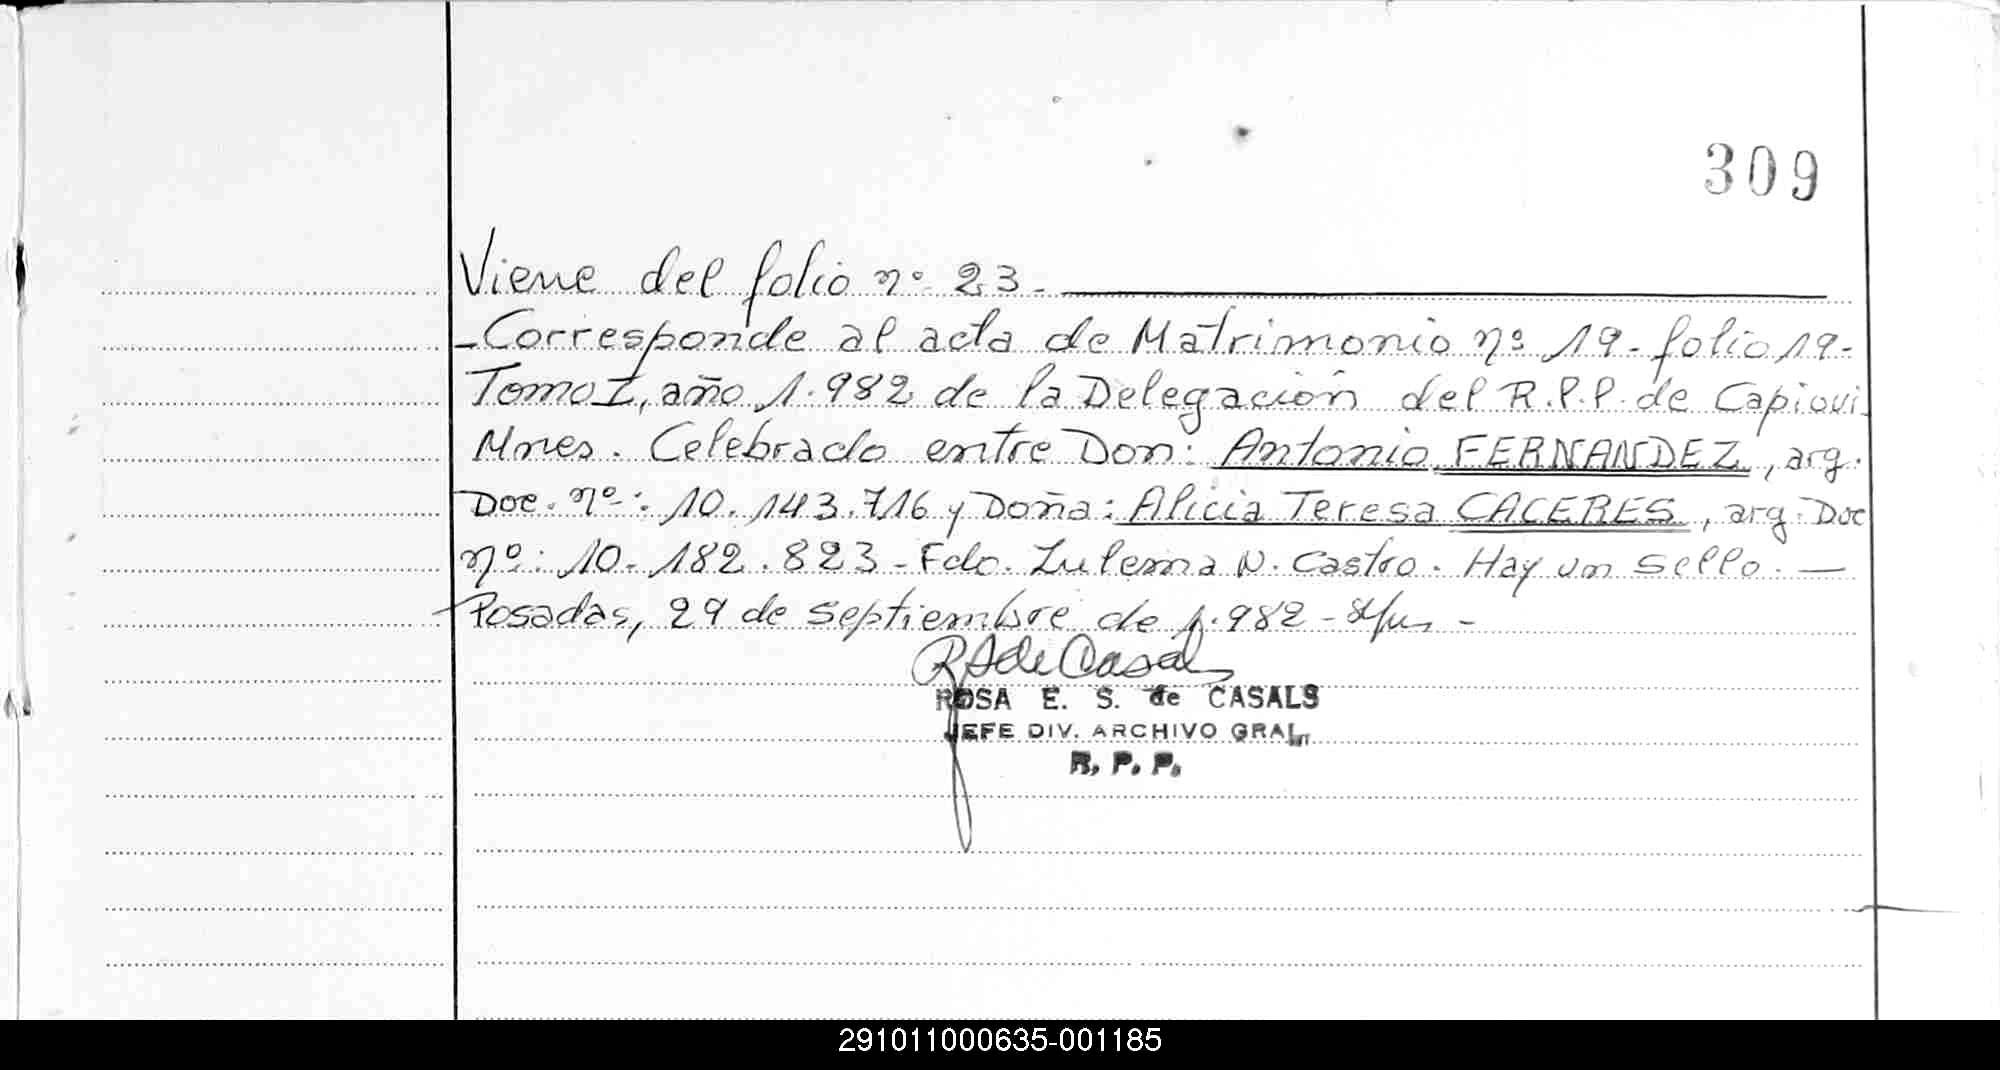 309
Viene del folio nº 23.
-Corresponde al acta de Matrimonio nº 19-folio 19-
Tomo I, año 1.982 de la Delegación del R.P.P. de Capiovi-
Mnes. Celebrado entre Don: Antonio FERNANDEZ, arg.
Doc. nº: 10.143.716 y Doña: Alicia Teresa CACERES, arg. Doc
nº: 10.182.823-Fdo. Zulema N. Castro. Hay un sello. —
Posadas, 29 de septiembre de 1.982-
ROSA E. S. de CASALS
JEFE DIV. ARCHIVO GRAL.
R. P. P.
291011000635-001185